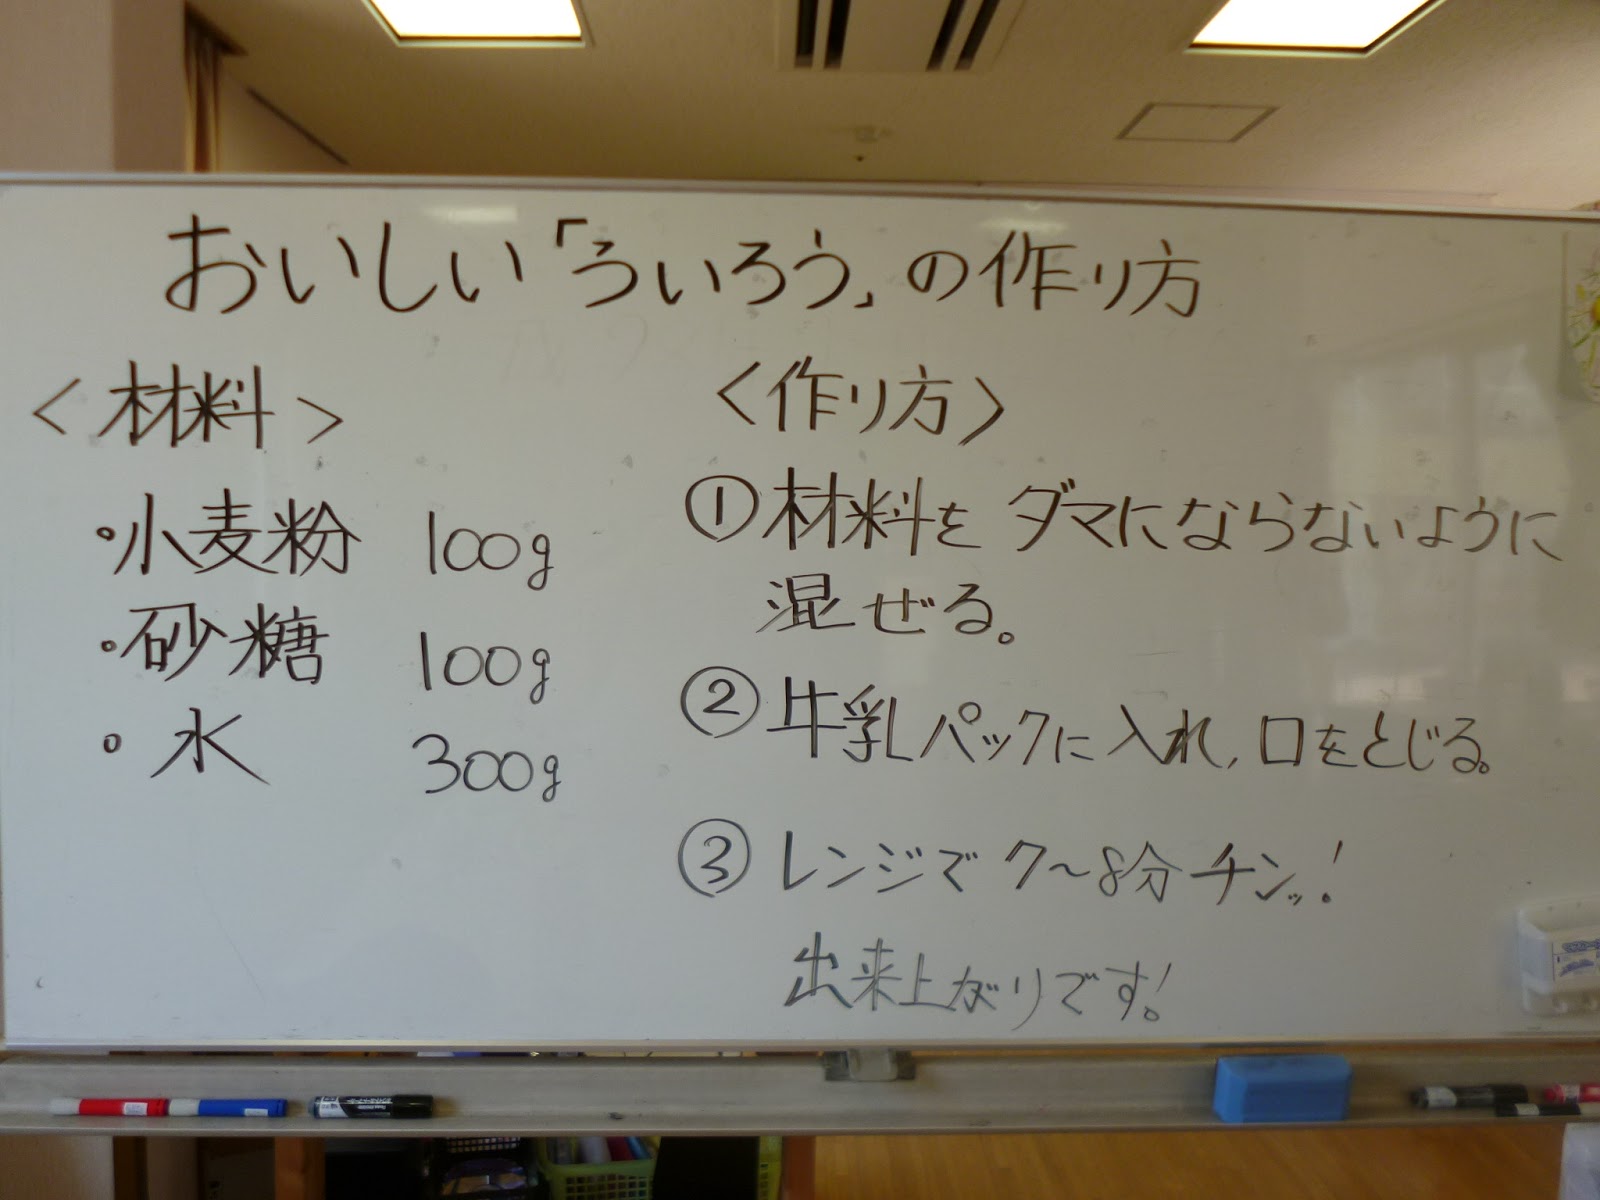 おいしい「ういろう」の作り方
＜材料＞
・小麦粉 100g
・砂糖 100g
・水 300g
〈作り方〉
①材料を ダマにならないように
混ぜる。
②牛乳パックに入れ、口をとじる。
③レンジで 7〜8分 チンッ!
出来上がりです!